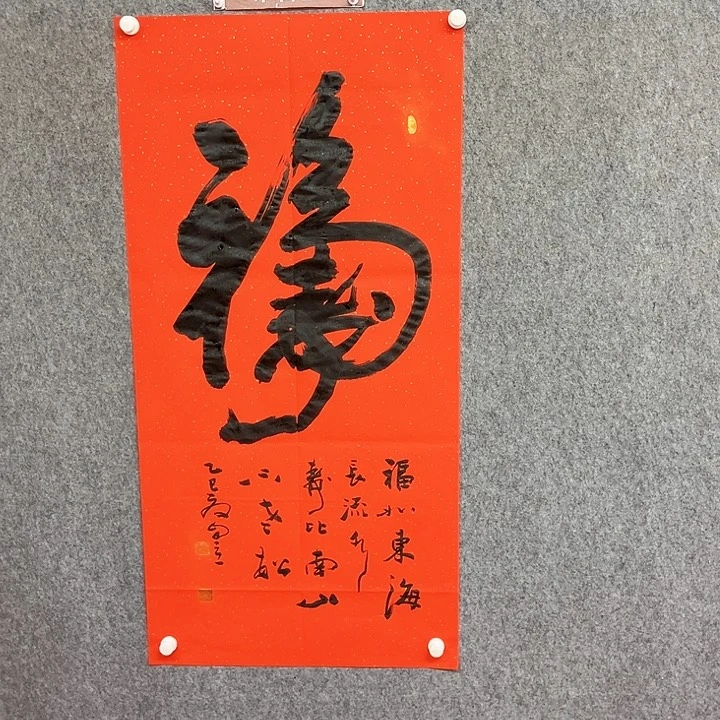 福
福如東海
長流水
壽比南山
不老松
乙巳